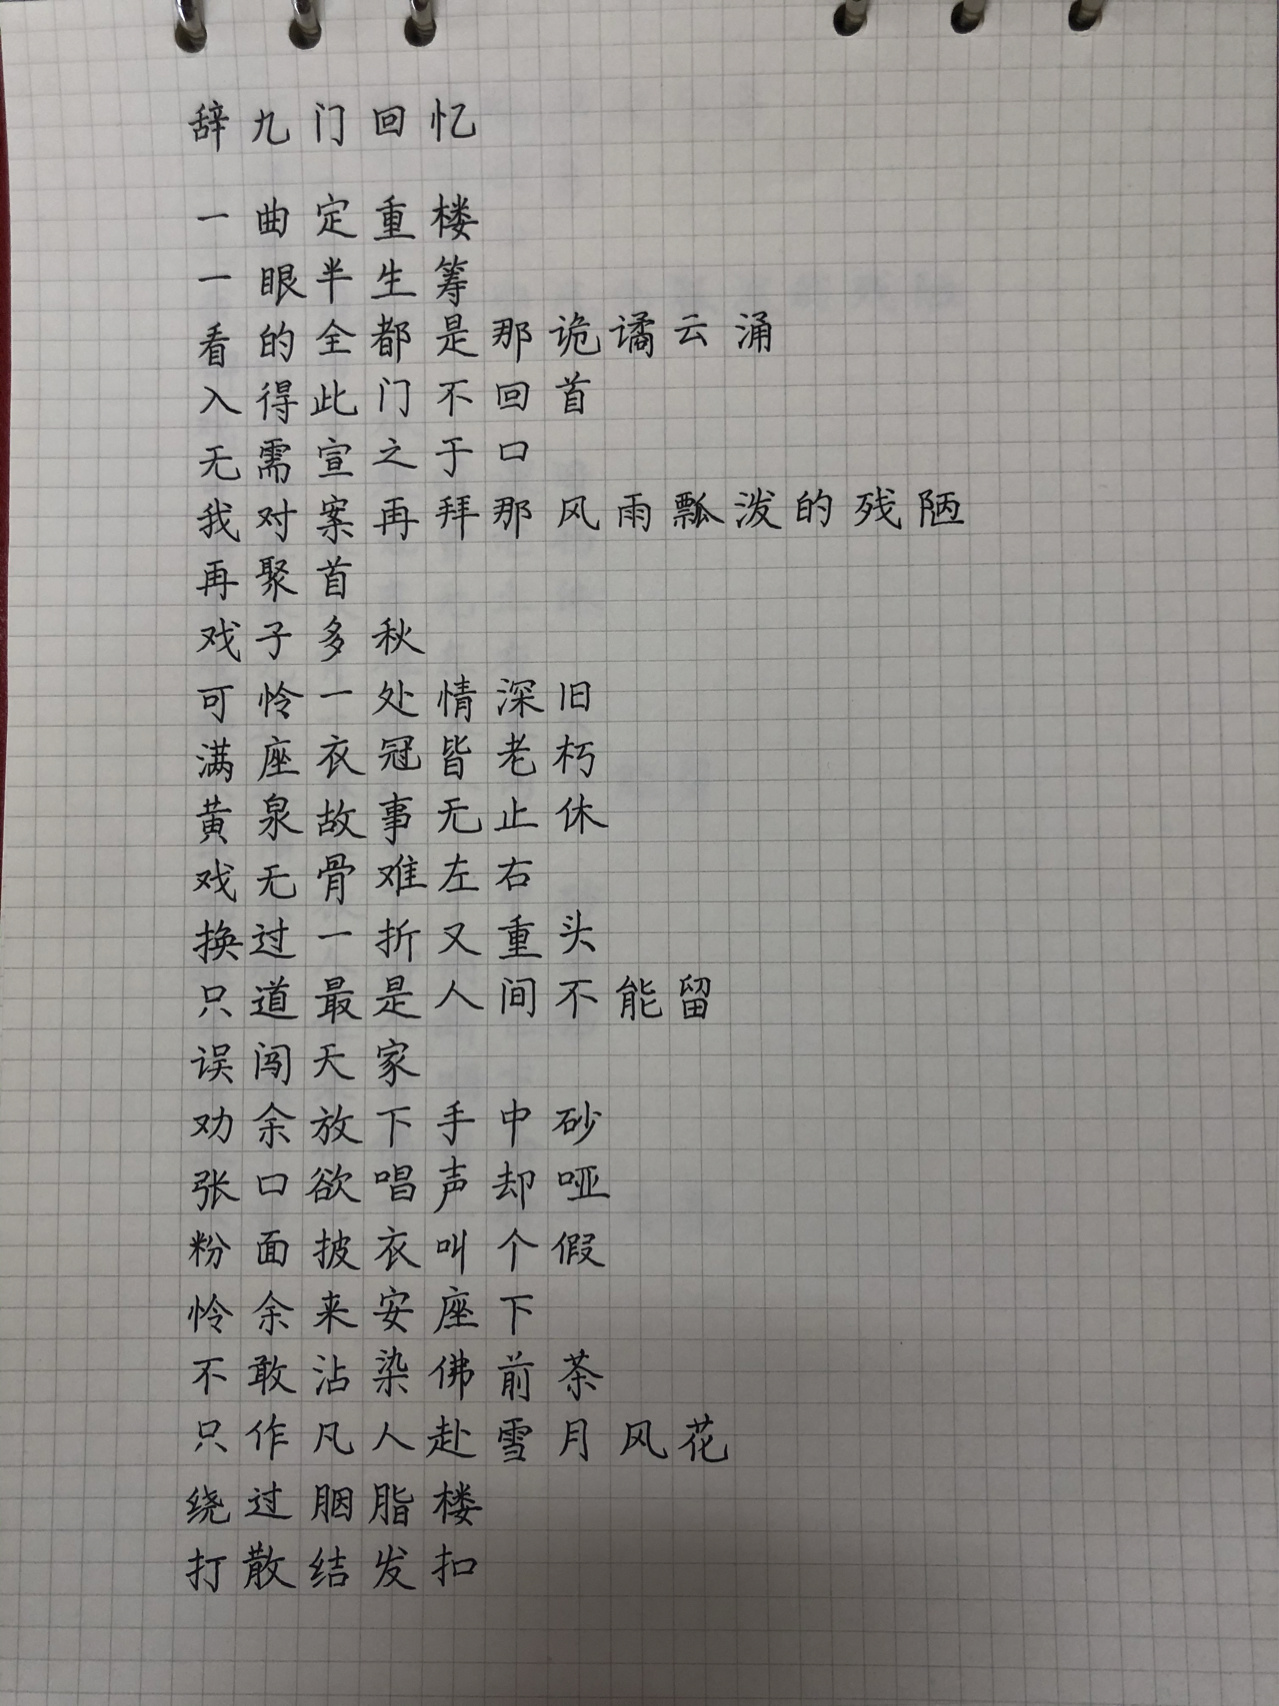 辞九门回忆
一曲定重楼
一眼半生筹
看的全都是那诡谲云涌
入得此门不回首
无需宣之于口
我对案再拜那风雨瓢泼的残陋
再聚首
戏子多秋
可怜一处情深旧
满座衣冠皆老朽
黄泉故事无止休
戏无骨难左右
换过一折又重头
只道最是人间不能留
误闯天家
劝余放下手中砂
张口欲唱声却哑
粉面披衣叫个假
怜余来安座下
不敢沾染佛前茶
只作凡人赴雪月风花
绕过胭脂楼
打散结发扣